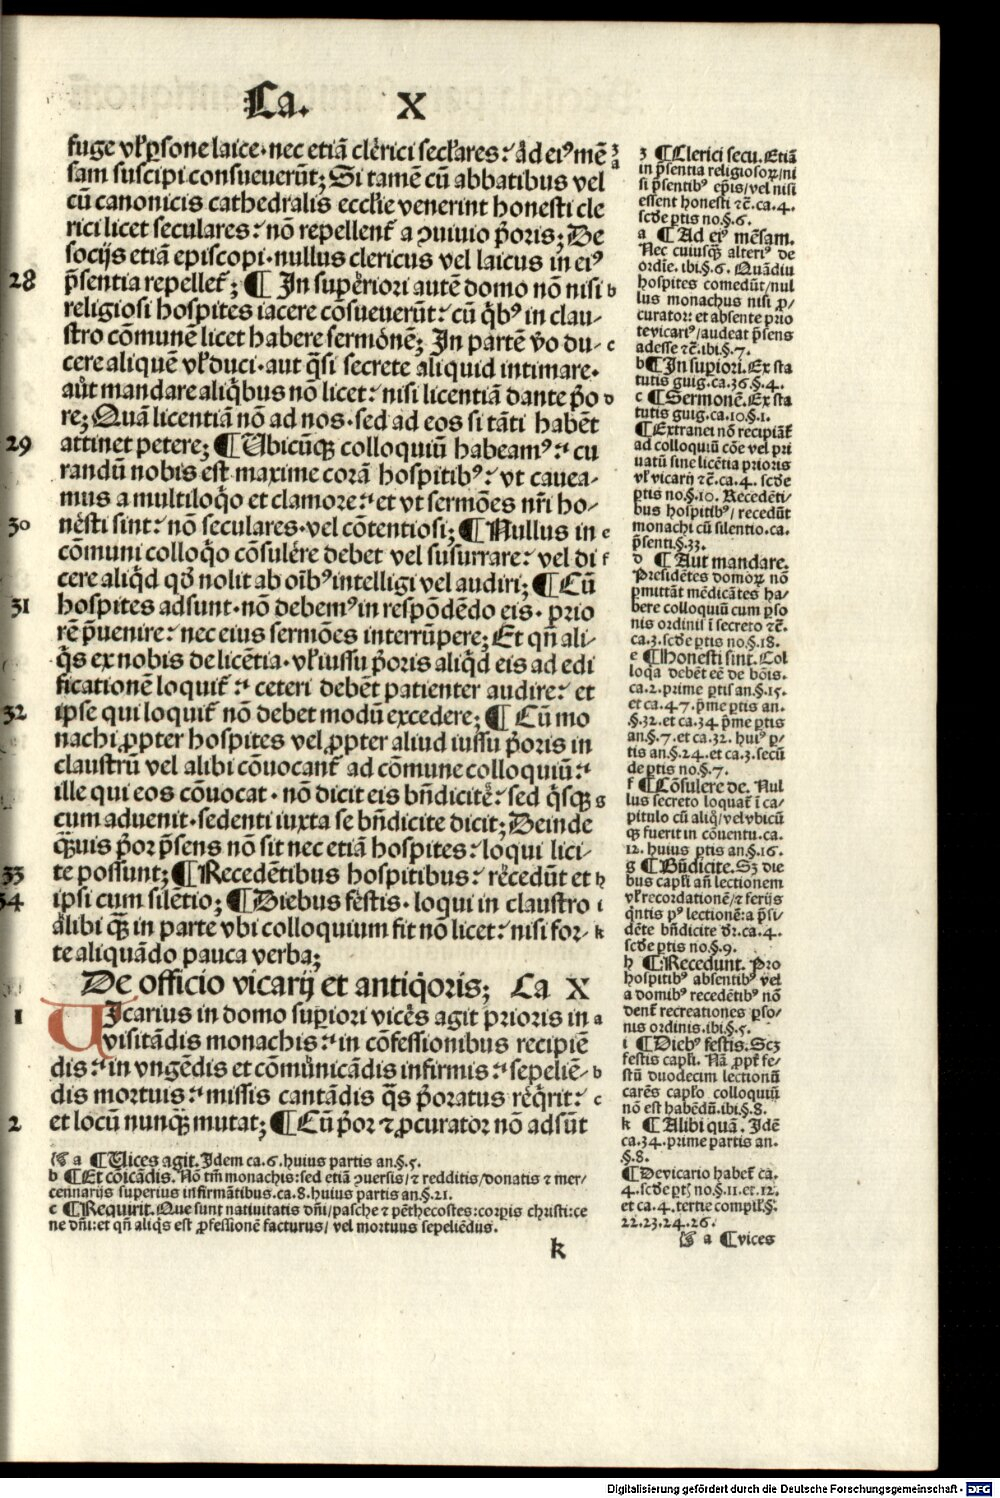 Ca. X
fuge vl' psone laice·nec etiã clerici seclares: ad eiꝰ mẽ z
sam suscipi consueuerũt; Si tamẽ cũ abbatibus vel a
cũ canonicis cathedralis ecclie venerint honesti cle
rici licet seculares: nõ repellent᷑ a ꝯuiuio p̃oris; De
socijs etiã episcopi·nullus clericus vel laicus in eiꝰ
28 p̃sentia repellet᷑; ¶ In superiori autẽ domo nõ nisi b
religiosi hospites iacere cõsueuerũt: cũ q̃bꝰ in clau-
stro cõmunẽ licet habere sermonẽ; In partẽ v̊o du- c
cere aliquẽ vl' duci·aut q̃si secrete aliquid intimare·
aũt mandare aliq̃bus nõ licet: nisi licentiã dante p̃o d
re; Quã licentiã nõ ad nos·sed ad eos si tãti habẽt
29 attinet petere; ¶ Ubicũqꝫ colloquiũ habeamꝰ: cu
randũ nobis est maxime corã hospitibꝰ: vt cauea-
mus a multiloq̃o et clamore: et vt sermões nr̃i ho-
30 nesti sint: nõ seculares·vel cõtentiosi; ¶ Nullus in e
cõmuni colloq̃o cõsulere debet vel susurrare: vel di f
cere aliq̃d qđ nolit ab oĩbꝰ intelligi vel audiri; ¶ Cũ
31 hospites adsunt·nõ debemꝰ in respõdẽdo eis· prio
rẽ p̃uenire: nec eius sermões interrũpere; Et qñ ali-
q̃s ex nobis de licẽtia·vl' iussu p̃oris aliq̃d eis ad edi
ficationẽ loquit᷑: ceteri debẽt patienter audire: et
32 ipse qui loquit᷑ nõ debet modũ excedere; ¶ Cũ mo
nachi ꝓpter hospites vel ꝓpter aliud iussu p̃oris in
claustrũ vel alibi cõuocant᷑ ad cõmune colloquiũ:
ille qui eos cõuocat·nõ dicit eis bñdicite: sed q̃sqꝫ g
cum aduenit·sedenti iuxta se bñdicite dicit; Deinde
q̃uis p̃or p̃sens nõ sit nec etiã hospites: loqui lici-
33 te possunt; ¶ Recedẽtibus hospitibus: recedũt et h
34 ipsi cum silẽtio; ¶ Diebus festis·loqui in claustro i
alibi q̃ꝫ in parte vbi colloquium fit nõ licet: nisi for- k
te aliquãdo pauca verba;
De officio vicarij et antiq̃oris; Ca X
1 UIcarius in domo supiori vices agit prioris in a
visitãdis monachis: in cõfessionibus recipiẽ
dis: in vngẽdis et cõmũicãdis infirmis: sepeliẽ- b
dis mortuis: missis cantãdis q̃s p̃oratus req̃rit: c
2 et locũ nunqꝫ mutat; ¶ Cũ p̃or ⁊ ꝓcurator nõ adsũt
a ¶ Vices agit. Idem ca.6.huius partis an.§.5.
b ¶ Et cõicãdis. Nõ tm̃ monachis:sed etiã ꝯuersis/⁊ redditis/donatis ⁊ mer/
cennarijs superius infirmãtibus.ca.8.huius partis an.§.21.
c ¶ Requirit. Que sunt natiuitatis dñi/pasche ⁊ pẽthecostes:corpis christi:ce
ne dñi:et qñ aliq̃s est ꝓfessionẽ facturus/ vel mortuus sepeliẽdus.
k
z ¶ Clerici secu. Etiã
in p̃sentia religiosoꝝ/ni
si p̃sentibꝰ ep̃is/vel nisi
essent honesti ⁊c̃.ca.4.
scđe ptis no.§.6.
a ¶ Ad eiꝰ mẽsam.
Nec cuiusqꝫ alteriꝰ de
ordĩe. ibi.§.6. Quãdiu
hospites comedũt/nul
lus monachus nisi ꝓ/
curator: et absente prio
re vicariꝰ/audeat p̃sens
adesse ⁊c̃.ibi.§.7.
b ¶ In supiori. Ex sta
tutis guig.ca.36.§.4.
c ¶ Sermonẽ. Ex sta
tutis guig.ca.10.§.1.
¶ Extranei nõ recipiãt᷑
ad colloquiũ cõe vel pri
uatũ sine licẽtia prioris
vl' vicarij ⁊c̃.ca.4. scđe
ptis no.§.10. Recedẽti/
bus hospitibꝰ/ recedũt
monachi cũ silentio.ca.
p̃senti.§.33.
d ¶ Aut mandare.
Presidẽtes domoꝝ nõ
pmittãt mẽdicãtes ha/
bere colloquiũ cum pso
nis ordinis ĩ secreto ⁊c̃.
ca.3.scđe ptis no.§.18.
e ¶ Honesti sint. Col
loqa debẽt eẽ de bõis.
ca.2.prime ptis an.§.15.
et ca.47.p̃me ptis an.
§.32.et ca.34 p̃me ptis
an.§.7.et ca.32. huiꝰ p/
tis an.§.24.et ca.3.secũ
de ptis no.§.7.
f ¶ Cõsulere de. Nul
lus secreto loquat᷑ ĩ ca/
pitulo cũ aliq̃/vel vbicũ
qꝫ fuerit in cõuentu.ca.
12. huius ptis an.§.16.
g ¶ Bñdicite. Sꝫ die
bus capli añ lectionem
vl' recordationẽ/⁊ ferijs
q̃ntis pꝰ lectionẽ:a p̃si/
dẽte bñdicite dr̃.ca.4.
scđe ptis no.§.9.
h ¶ Recedunt. Pro
hospitibꝰ absentibꝰ vel
a domibꝰ recedẽtibꝰ nõ
dent᷑ recreationes pso/
nis ordinis.ibi.§.5.
i ¶ Diebꝰ festis. Scꝫ
festis capli. Nã ꝓpt᷑ fe/
stũ duodecim lectionũ
carẽs caplo colloquiũ
nõ est habẽdũ.ibi.§.8.
k ¶ Alibi quã. Idẽ
ca.34.prime partis an.
§.8.
¶ De vicario habet᷑ ca.
4.scđe ptꝭ no.§.11.et.12.
et ca.4.tertie compil'.§.
22.23.24.26.
a ¶ vices
Digitalisierung gefördert durch die Deutsche Forschungsgemeinschaft · DFG